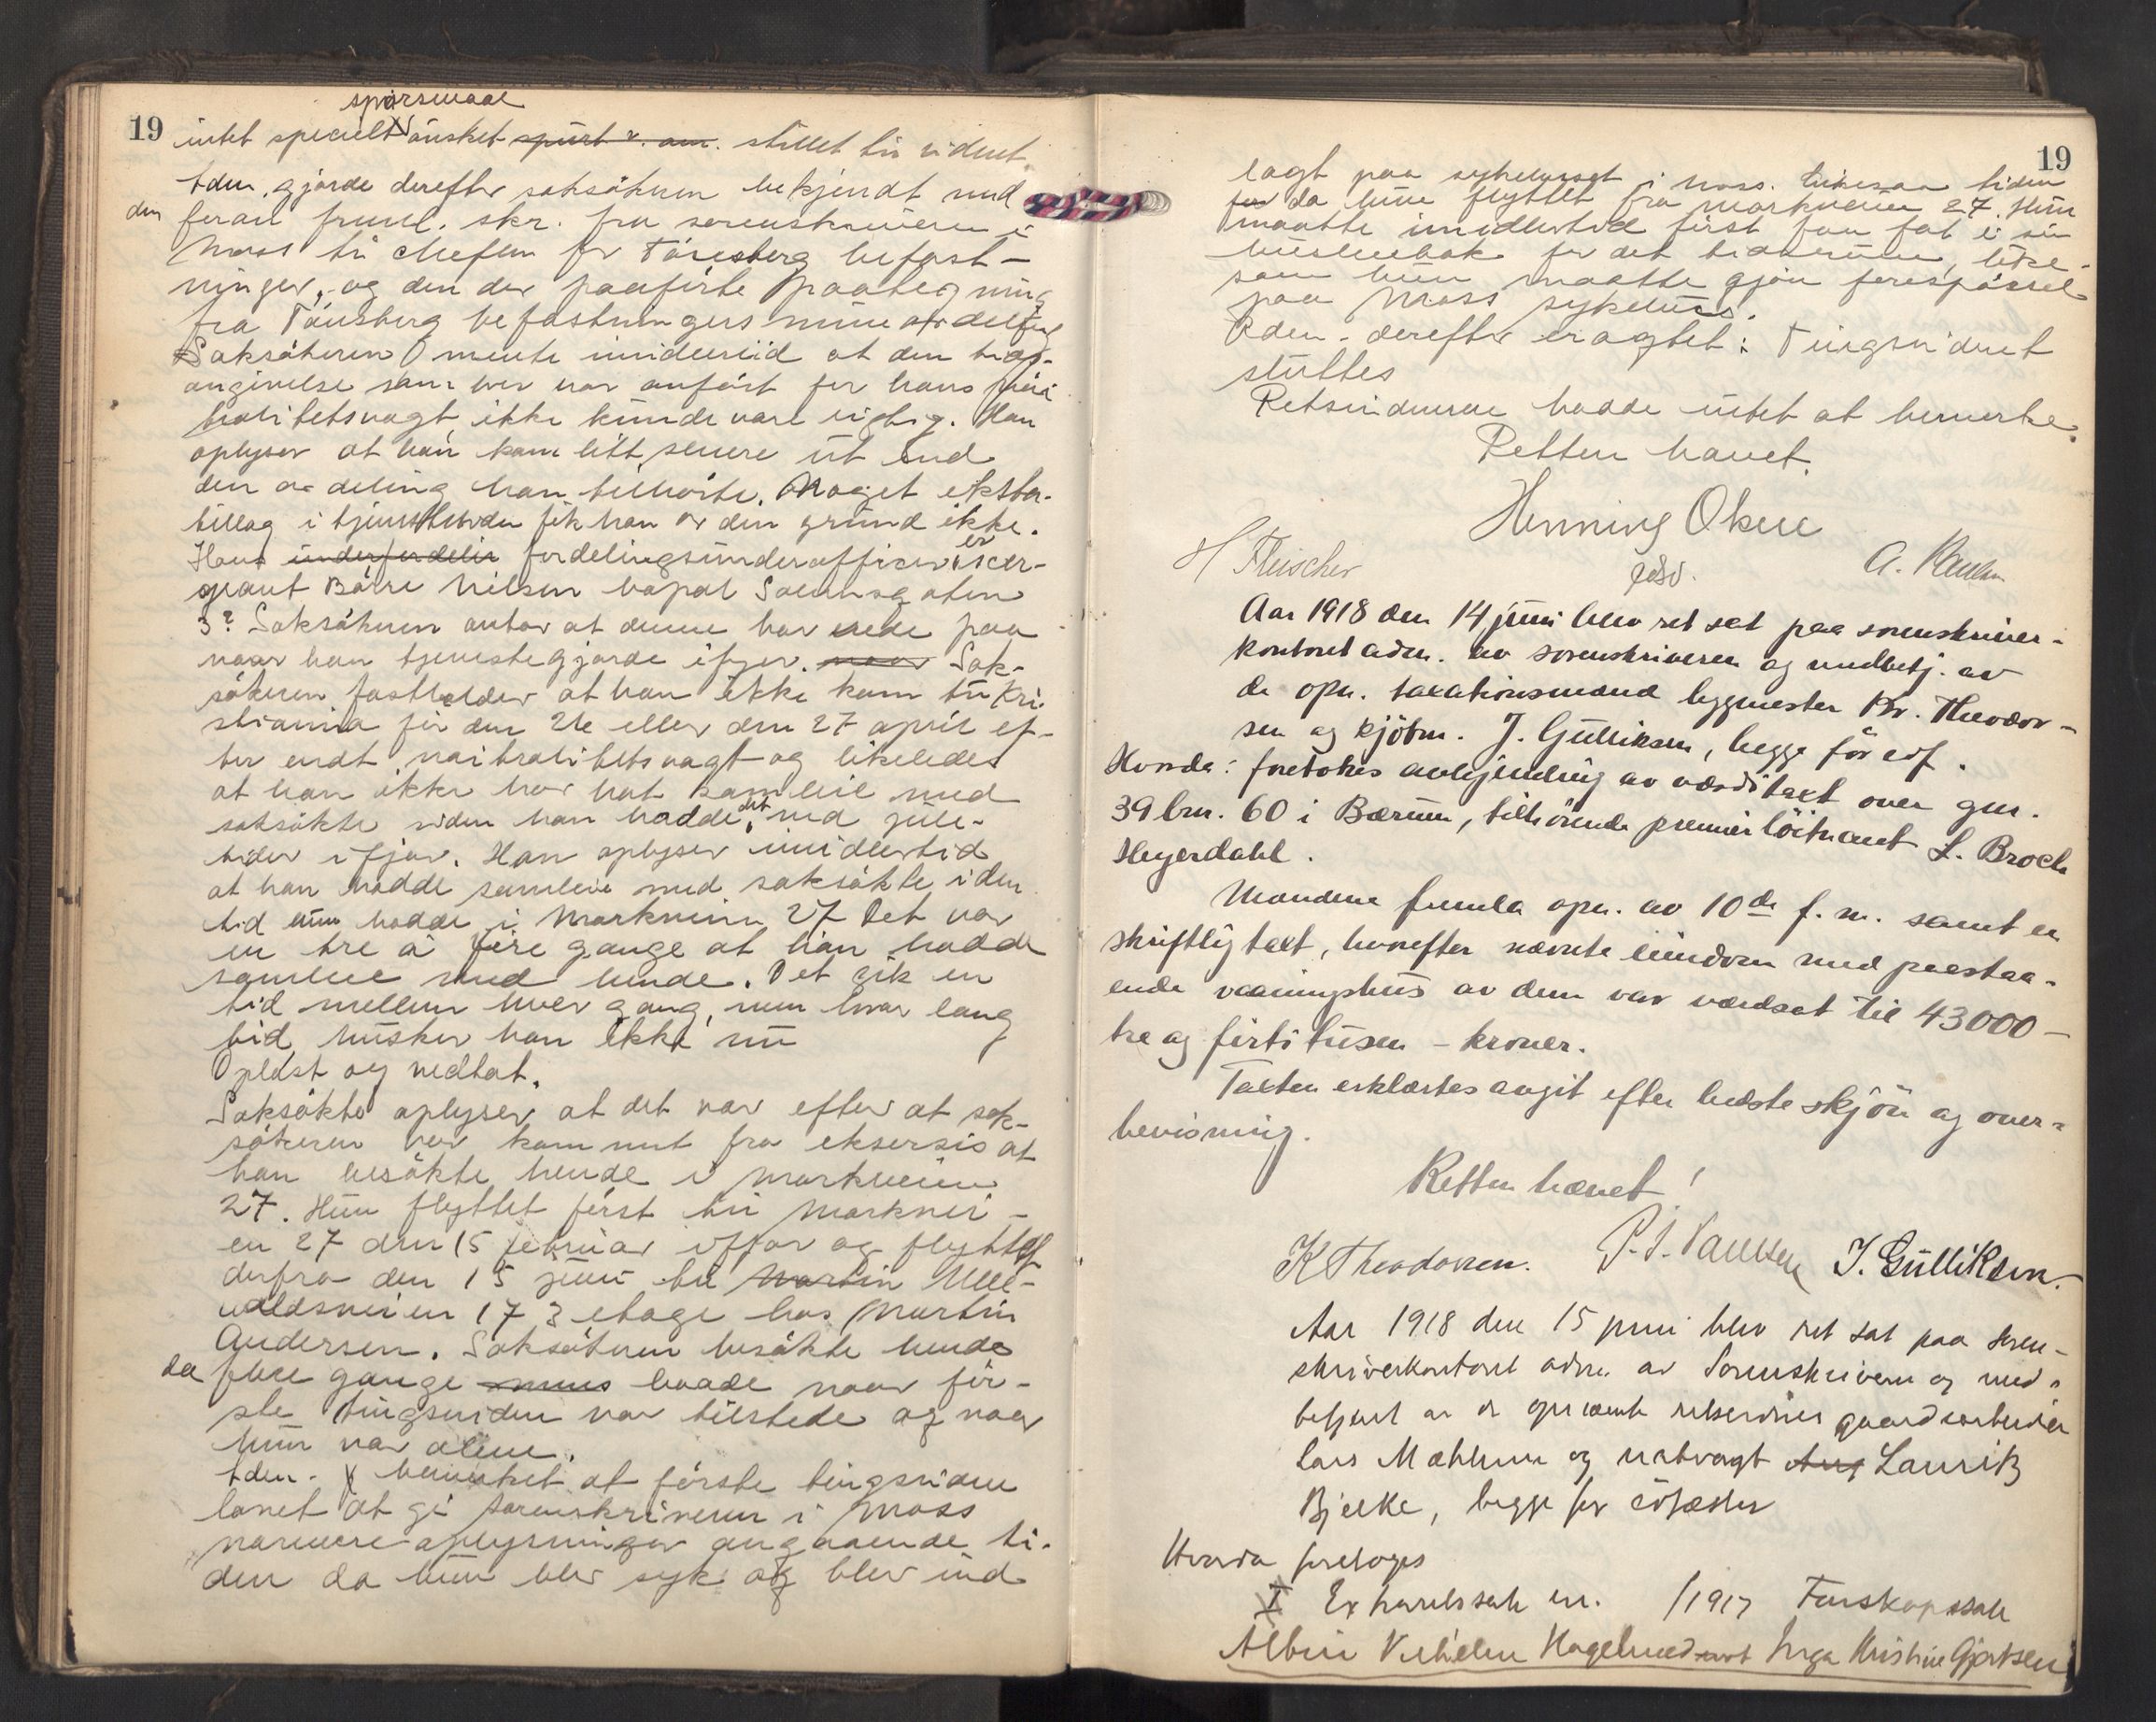 19
spörsmaal
intet specielt önsket spurt v. am. stillet til vidnet.
Adm. gjorde derefter saksökeren bekjendt med
den foran freml. skr. fra sorenskriveren i
Moss til chefen for Tönsberg befæst-
ninger, og den der paaförte paategning
fra Tönsberg befæstningers mineavdeling
Saksökeren mente imidlertid at den tids-
angivelse som her var anfört for hans nöi-
tralitetsvagt ikke kunde være rigtig. Han
oplyser at han kom litt senere ut end
den avdeling han tilhörte. Noget ekstra
tillæg i tjenestetiden fik han av den grund ikke.
Hans underfordelin fordelingsunderofficer er ser-
geant Börre Nilsen bopæl
3? Saksökeren antar at denne har rede paa
naar han tjenestegjorde ifjor. naar Sak-
sökeren fastholder at han ikke kom til Kri-
stiania för den 26 eller den 27 april ef-
ter endt nöitralitetsvagt og likeledes
at han ikke har hat samleie med
saksökte siden han hadde det ved jule-
tider ifjor. Han oplyser imidlertid
at han hadde samleie med saksökte i den
tid hun hadde i Markveien 27 Det var
en tre à fire gange at han hadde
samleie med hende. Det gik en
tid mellem hver gang, men hvor lang
tid husker han ikke nu
Oplæst og vedtat.
Saksökte oplyser at det var efter at sak-
sökeren var kommet fra eksersis at
han besökte hende i Markveien
27. Hun flyttet först til Markvei-
en 27 den 15 februar ifjor og flyttet
derfra den 15 juni til Martin Ulle-
vældsveien 17 3 etage hos Martin
Andersen. Saksökeren besökte hende
da flere gange mens baade naar för-
ste tingsvidne var tilstede og naar
hun var alene.
Adm. bemerket at förste tingsvidne
lovet at gi sorenskriveren i Moss
nærmere oplysninger angaaende ti-
den da hun blev syk og blev ind
19
lagt paa sykehuset i Moss. Likesaa tiden
for da hun flyttet fra Markveien 27. Hun
maatte imidlertid först faa fat i sin
huslეiebok for det tidsrum, like-
som hun maatte gjöre forespörsel
paa Moss sykehus.
Adm. derefter eragtet: Tingsvidnet
sluttes
Retsvidnerne hadde intet at bemerke.
Retten hævet.
Henning Oker
edsv.
H Fleischer
A. Paulsen
Aar 1918 den 14 juni blev ret sat paa sorenskriver-
kontoret adm. av sorenskriveren og medbetj. av
de opn. taxationsmænd bygmester Kr. Theodor-
sen og kjöbm. J. Gulliksen, begge för edf.
Hvorda: foretokes avhjemling av værditaxt over gnr.
39 brn. 60 i Bærum, tilhörende premierlöitnant L. Broch
Heyerdahl.
Mændene fremla opn. av 10de f. m. samt en
skriftlig taxt, hvorefter nævnte eiendom med paastaa-
ende vaaningshus av dem var værdsat til 43000 -
tre og firti tusen - kroner.
Taxten erklærtes avgit efter bedste skjön og over-
bevisning.
Retten hævet!
K Theodorsen. P. I. Paulsen J. Gulliksen.
Aar 1918 den 15 juni blev ret sat paa soren-
skriverkontoret adm. av Sorenskriveren og med-
betjent av de opnævnte retsvidner gaardsarbeider
Lars Mæhlum og natvagt Aug Lauritz
Bjelke, begge för edfæstet
Hvorda foretoges
I Extraretssak nr. /1917 Farskapssak
Albin Vilhelm Hagelund mot Inga Kristine Gjertsen